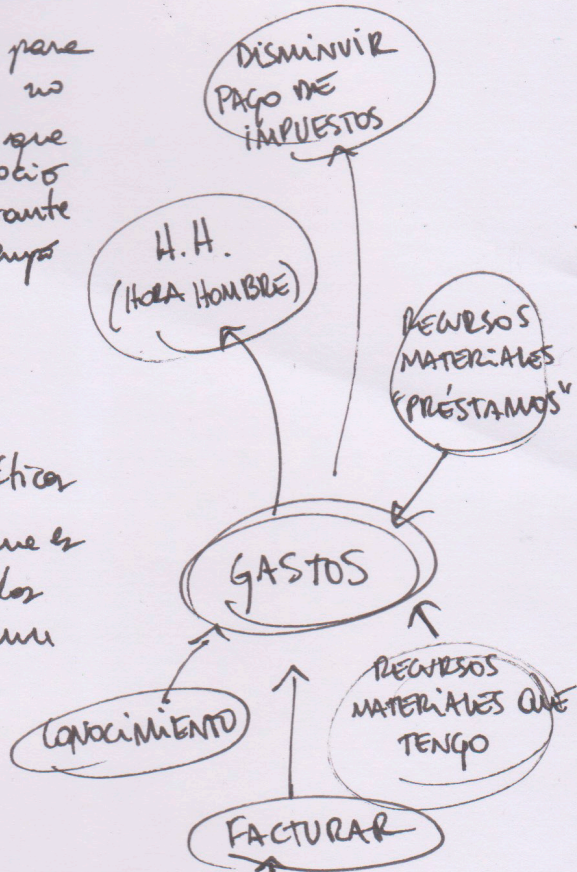 para
no
que
ocio
rante
DISMINUIR
PAGO DE
IMPUESTOS
H.H.
(HORA HOMBRE)
RECURSOS
MATERIALES
"PRÉSTAMOS"
GASTOS
CONOCIMIENTO
RECURSOS
MATERIALES QUE
TENGO
FACTURAR